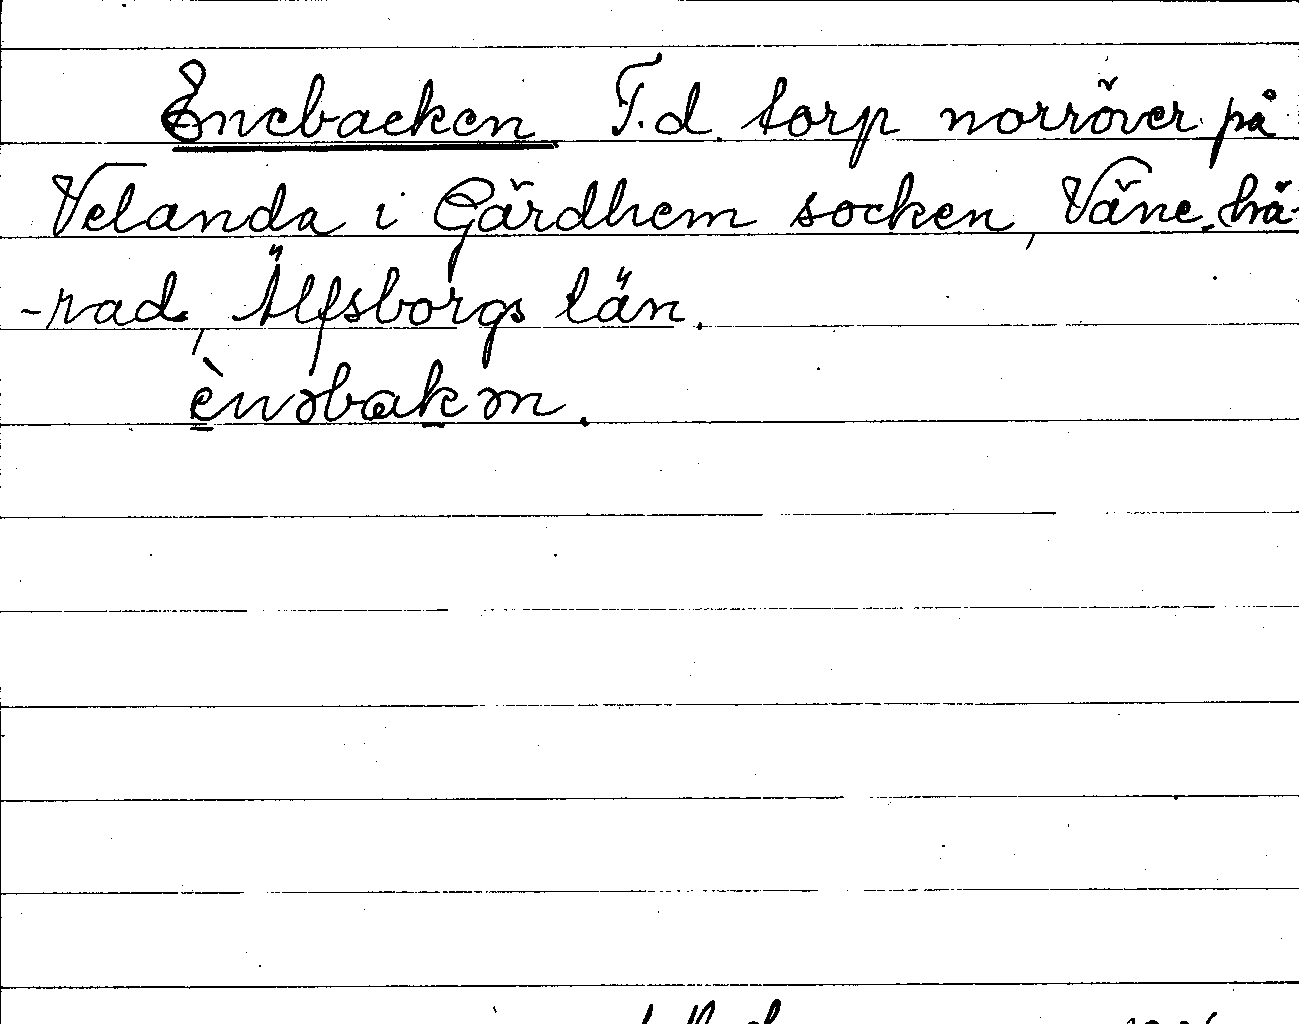 Enebacken T.d. torp norröver på
Velanda i Gärdhem socken, Väne hä-
-rad, Älfsborgs län.
ènəbakən.